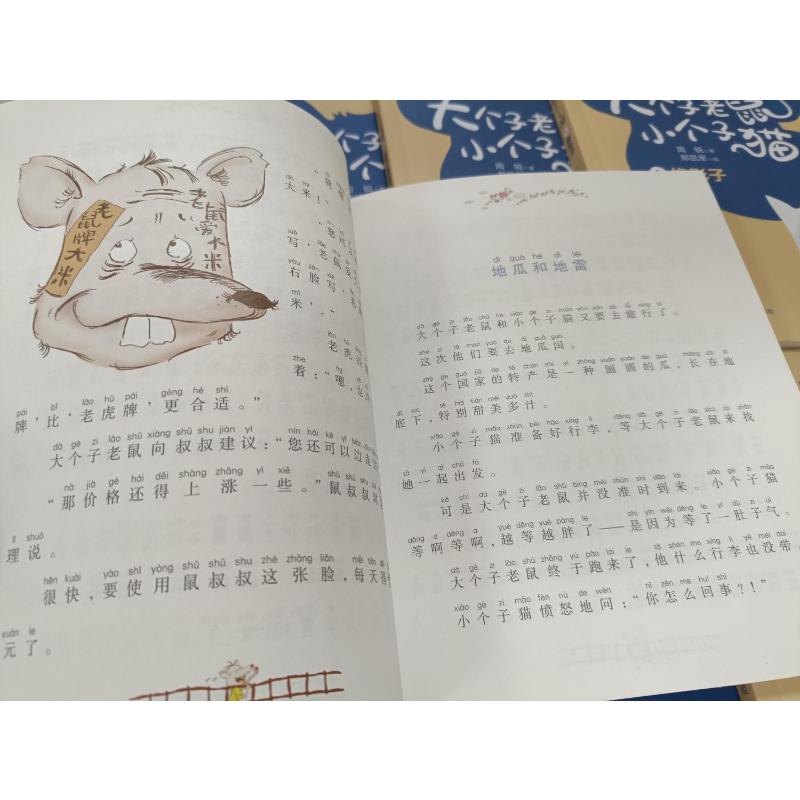 大个子老
小个子
周 锐
大个子老鼠
小个子猫
周 锐
郑凯军
老鼠牌大米
老鼠爱大米
大米！
写，老鼠爱
右脸写
米'。”
老虎
着：“嗯，
pái bǐ lǎo hǔ pái gèng hé shì
牌，比，老虎牌，更合适。”
dà gè zi lǎo shǔ xiàng shǔ shu shu jiàn yì nín hái kě yǐ
大个子老鼠向鼠叔叔建议：“您还可以边走
nà jià gé hái děi shàng zhǎng yì xiē shǔ shū shu
“那价格还得上涨一些。”鼠叔叔
lǐ shuō
理说。
hěn kuài yào shǐ yòng shǔ shū shu zhè zhāng liǎn měi tiān
很快，要使用鼠叔叔这张脸，每天得
yuán le
元了。
dì guā hé dì léi
地瓜和地雷
dà gè zi lǎo shǔ hé xiǎo gè zi māo yòu yào qù lǚ xíng le
大个子老鼠和小个子猫又要去旅行了。
zhè cì tā men yào qù dì guā guó
这次他们要去地瓜国。
zhè ge guó jiā de tè chǎn shì yì zhǒng yuán yuán de guā zhǎng zài dì
这个国家的特产是一种圆圆的瓜，长在地
dǐ xià tè bié tián měi duō zhī
底下，特别甜美多汁。
xiǎo gè zi māo zhǔn bèi hǎo xíng li děng dà gè zi lǎo shǔ lái zhǎo
小个子猫准备好行李，等大个子老鼠来找
tā yì qǐ chū fā
她一起出发。
kě shì dà gè zi lǎo shǔ bìng méi zhǔn shí dào lái xiǎo gè zi māo
可是大个子老鼠并没准时到来。小个子猫
děng a děng a yuè děng yuè pàng le shì yīn wèi děng le yí dù zi qì
等啊等啊，越等越胖了——是因为等了一肚子气。
dà gè zi lǎo shǔ zhōng yú pǎo lái le tā shén me xíng li yě méi dài
大个子老鼠终于跑来了，他什么行李也没带。
xiǎo gè zi māo fèn nù de wèn nǐ zěn me huí shì
小个子猫愤怒地问：“你怎么回事？！”